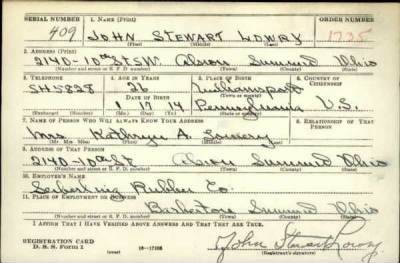 SERIAL NUMBER 1. NAME (Print) ORDER NUMBER
409 JOHN STEWART LOWRY 1735
(First) (Middle) (Last)
2. ADDRESS (Print)
2140-10th ST. S.W. Akron Summit Ohio
(Number and street or R. F. D. number) (Town) (County) (State)
3. TELEPHONE 4. AGE IN YEARS 5. PLACE OF BIRTH 6. COUNTRY OF CITIZENSHIP
SH5828 26 Williamsport
DATE OF BIRTH (Town or county)
1 17 14 Pennsylvania U.S.
(Exchange) (Number) (Mo.) (Day) (Yr.) (State or country)
7. NAME OF PERSON WHO WILL ALWAYS KNOW YOUR ADDRESS 8. RELATIONSHIP OF THAT PERSON
Mrs. Kathryn A. Lowery
(Mr., Mrs., Miss) (First) (Middle) (Last)
9. ADDRESS OF THAT PERSON
2140-10th St Akron Summit Ohio
(Number and street or R. F. D. number) (Town) (County) (State)
10. EMPLOYER'S NAME
Rubber Co.
11. PLACE OF EMPLOYMENT OR BUSINESS
Barberton Summit Ohio
(Number and street or R. F. D. number) (Town) (County) (State)
I AFFIRM THAT I HAVE VERIFIED ABOVE ANSWERS AND THAT THEY ARE TRUE.
REGISTRATION CARD
D. S. S. FORM 1 John Stewart Lowry
(Registrant's signature)